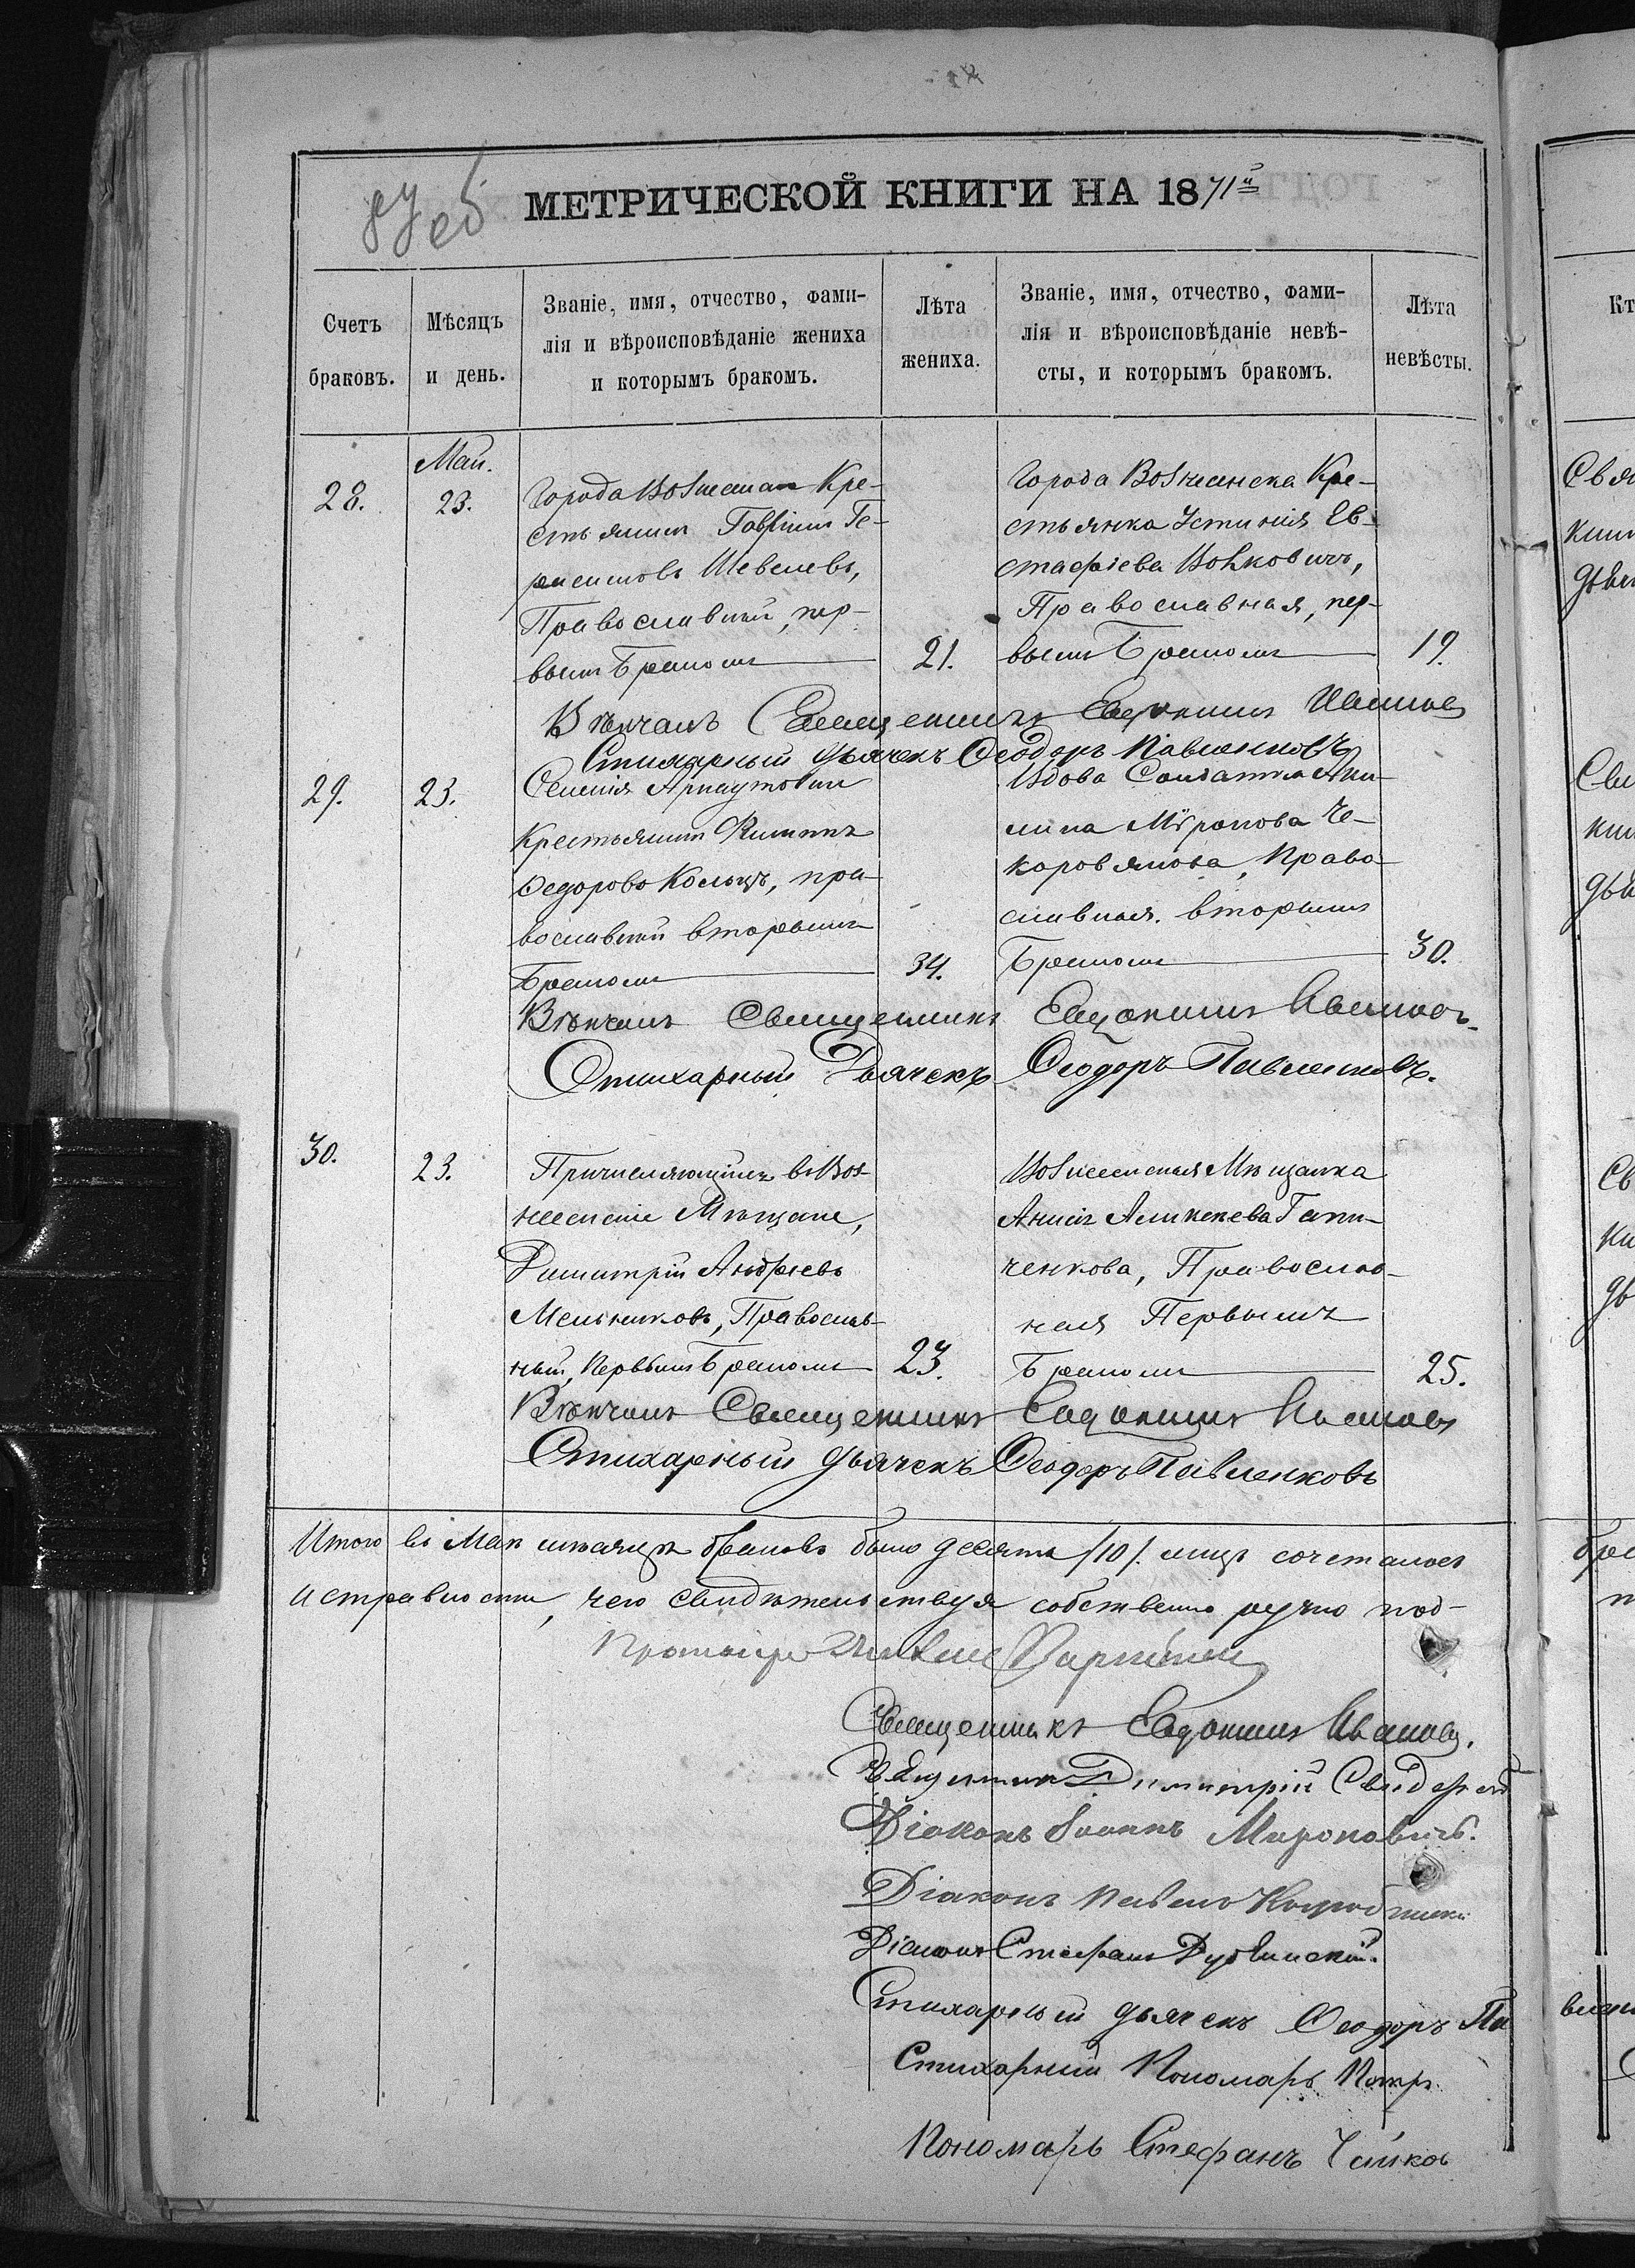 МЕТРИЧЕСКОЙ КНИГИ НА 1871й
Счетъ браковъ.
Мѣсяцъ и день.
Званіе, имя, отчество, фами-
лія и вѣроисповѣданіе жениха
и которымъ бракомъ.
Лѣта жениха.
Званіе, имя, отчество, фами-
лія и вѣроисповѣданіе невѣ-
сты, и которымъ бракомъ.
Лѣта невѣсты.
Май.
28.
23.
Города Вознесенска Кре-
стьянинъ Гавріилъ Ге-
расимовъ Шевелевъ,
Православный, пер-
вымъ бракомъ
21.
Города Вознесенска Кре-
стьянка Устинія Ев-
стафіева Волковичъ,
Православная, пер-
вымъ Бракомъ
19.
Вѣнчалъ Священникъ Евдокимъ Ивановъ
Стихарный дьячекъ Ѳеодоръ Павленковъ
29.
23.
Селенія Арнаутовки
Крестьянинъ Филиппъ
Ѳедоровъ Кольцъ, пра-
вославный вторымъ
Бракомъ
34.
Вдова Солдатка Аки-
лина Мѵронова Че-
коровянова, Право-
славная. вторымъ
Бракомъ
30.
Вѣнчалъ Священникъ Евдокимъ Ивановъ
Стихарный Дьячекъ Ѳеодоръ Павленковъ.
30.
23.
Причисляющійся въ Воз-
несенскіе Мѣщане,
Димитрій Андреевъ
Мельниковъ, Православ-
ный, Первымъ Бракомъ
23.
Вознесенская Мѣщанка
Анисія Алексеева Гапи-
ченкова, Православ-
ная Первымъ
Бракомъ
25.
Вѣнчалъ Священникъ Евдокимъ Ивановъ
Стихарный дьячекъ Ѳеодоръ Павленковъ
Итого въ Маѣ мѣсяцѣ браковъ было десять /10/. лицъ сочеталось
исправности, чего свидѣтельствуя собственно ручно под-
Протоіерей
Священникъ Евдокимъ Ивановъ.
Священникъ Димитрій
Діаконъ Іоаннъ Мироновичъ.
Діаконъ Павелъ
Діаконъ Стефанъ Дубинскій.
Стихарный дьячекъ Ѳеодоръ Па
Стихарный Пономарь Петръ
Пономарь Стефанъ Чайков